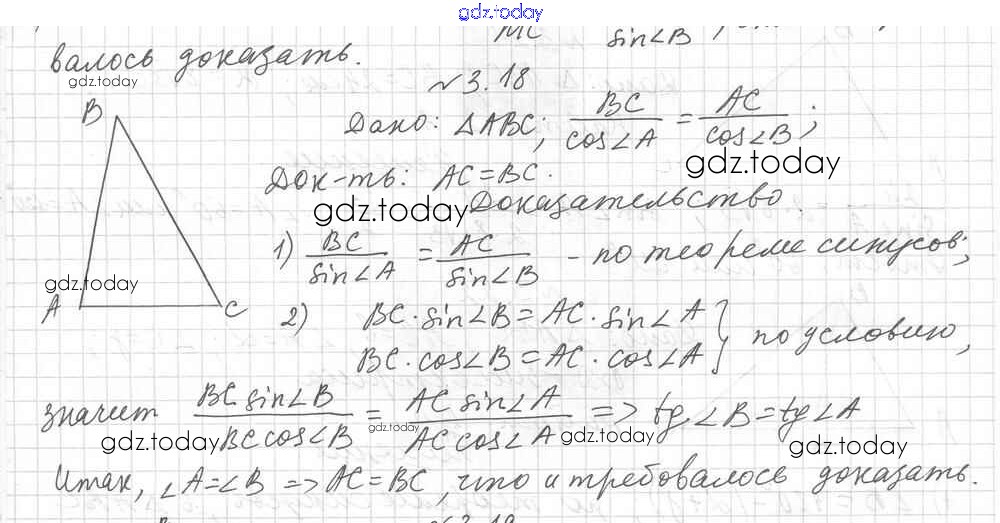 gdz.today
MC sin∠B
валось доказать.
gdz.today
№3.18
B
Дано: △ABC; BC/cos∠A = AC/cos∠B;
gdz.today
Док-ть: AC=BC.
gdz.today
Доказательство.
1) BC/sin∠A = AC/sin∠B - по теореме синусов;
gdz.today
A C
2) BC·sin∠B=AC·sin∠A
BC·cos∠B=AC·cos∠A } по условию,
значит BC sin∠B/BC cos∠B = AC sin∠A/AC cos∠A => tg∠B=tg∠A
gdz.today gdz.today gdz.today gdz.today
Итак, ∠A=∠B => AC=BC, что и требовалось доказать.